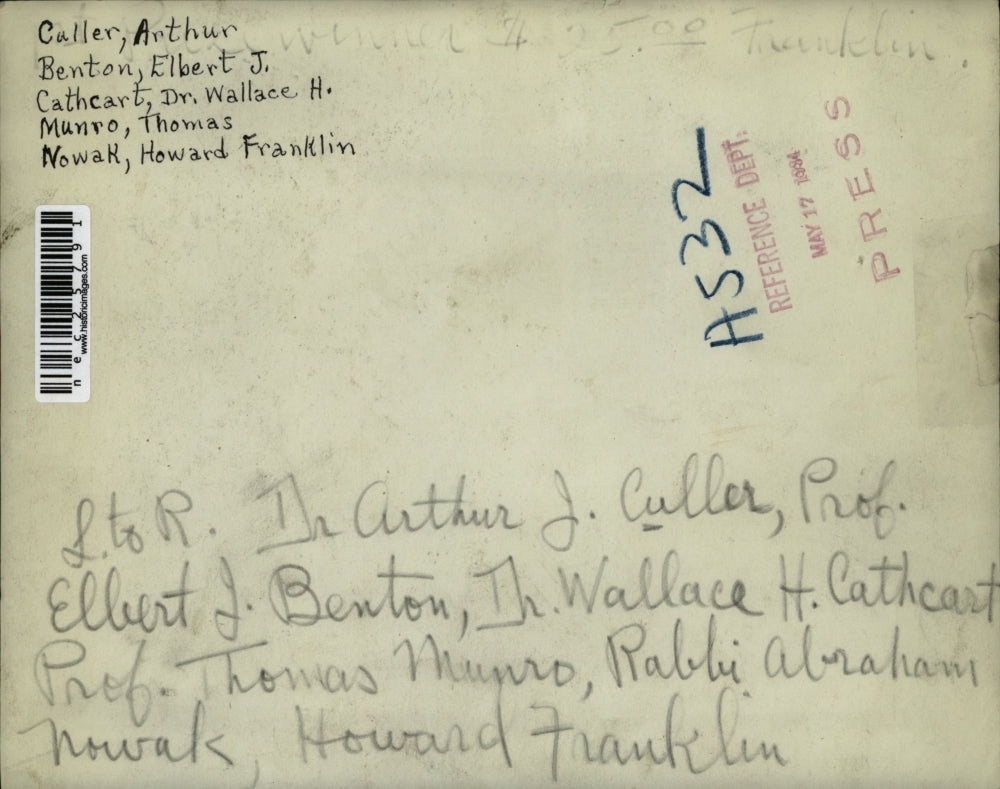 winner # 25.00 Franklin.
Culler, Arthur
Benton, Elbert J.
Cathcart, Dr. Wallace H.
Munro, Thomas
Nowak, Howard Franklin
necc25791
www.historicimages.com
H532
REFERENCE DEPT.
MAY 17
PRESS
L. to R. Dr Arthur J. Culler, Prof.
Elbert J. Benton, Dr. Wallace H. Cathcart
Prof. Thomas Munro, Rabbi Abraham
Nowak, Howard Franklin